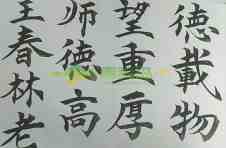 王春林老
師德高
望重厚
德載物